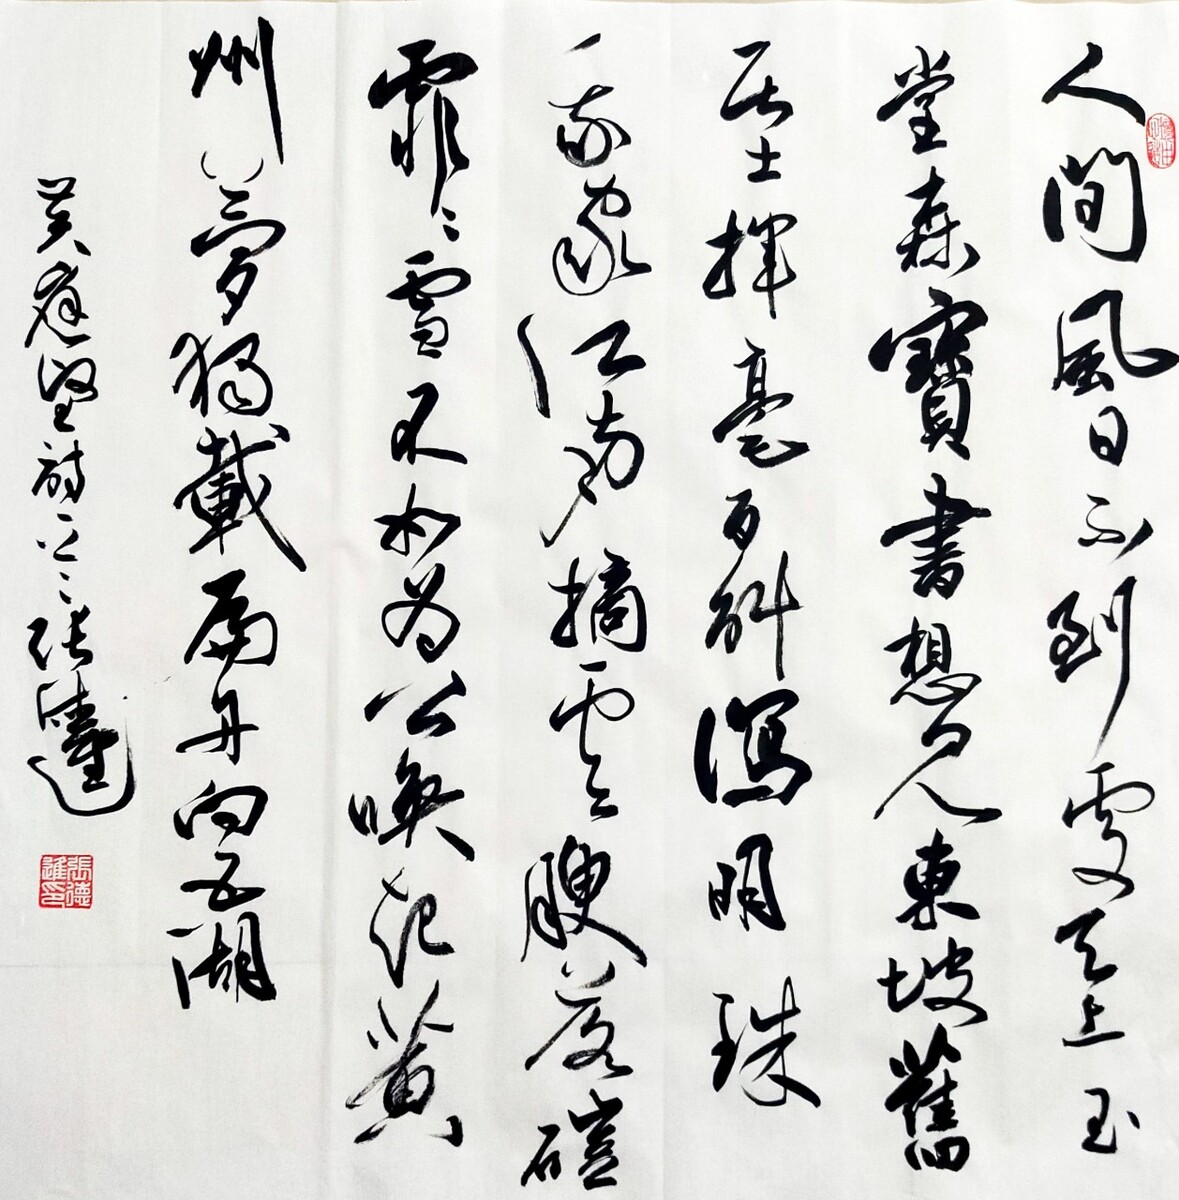 人間風日不到處天上玉
堂森寶書想見東坡舊
居士揮毫百斛瀉明珠
我家江南摘雲腴落磑
霏〻雪不如為公喚起黃
州夢獨載扁舟向五湖
黃庭堅詩一首 張德進
張德進印